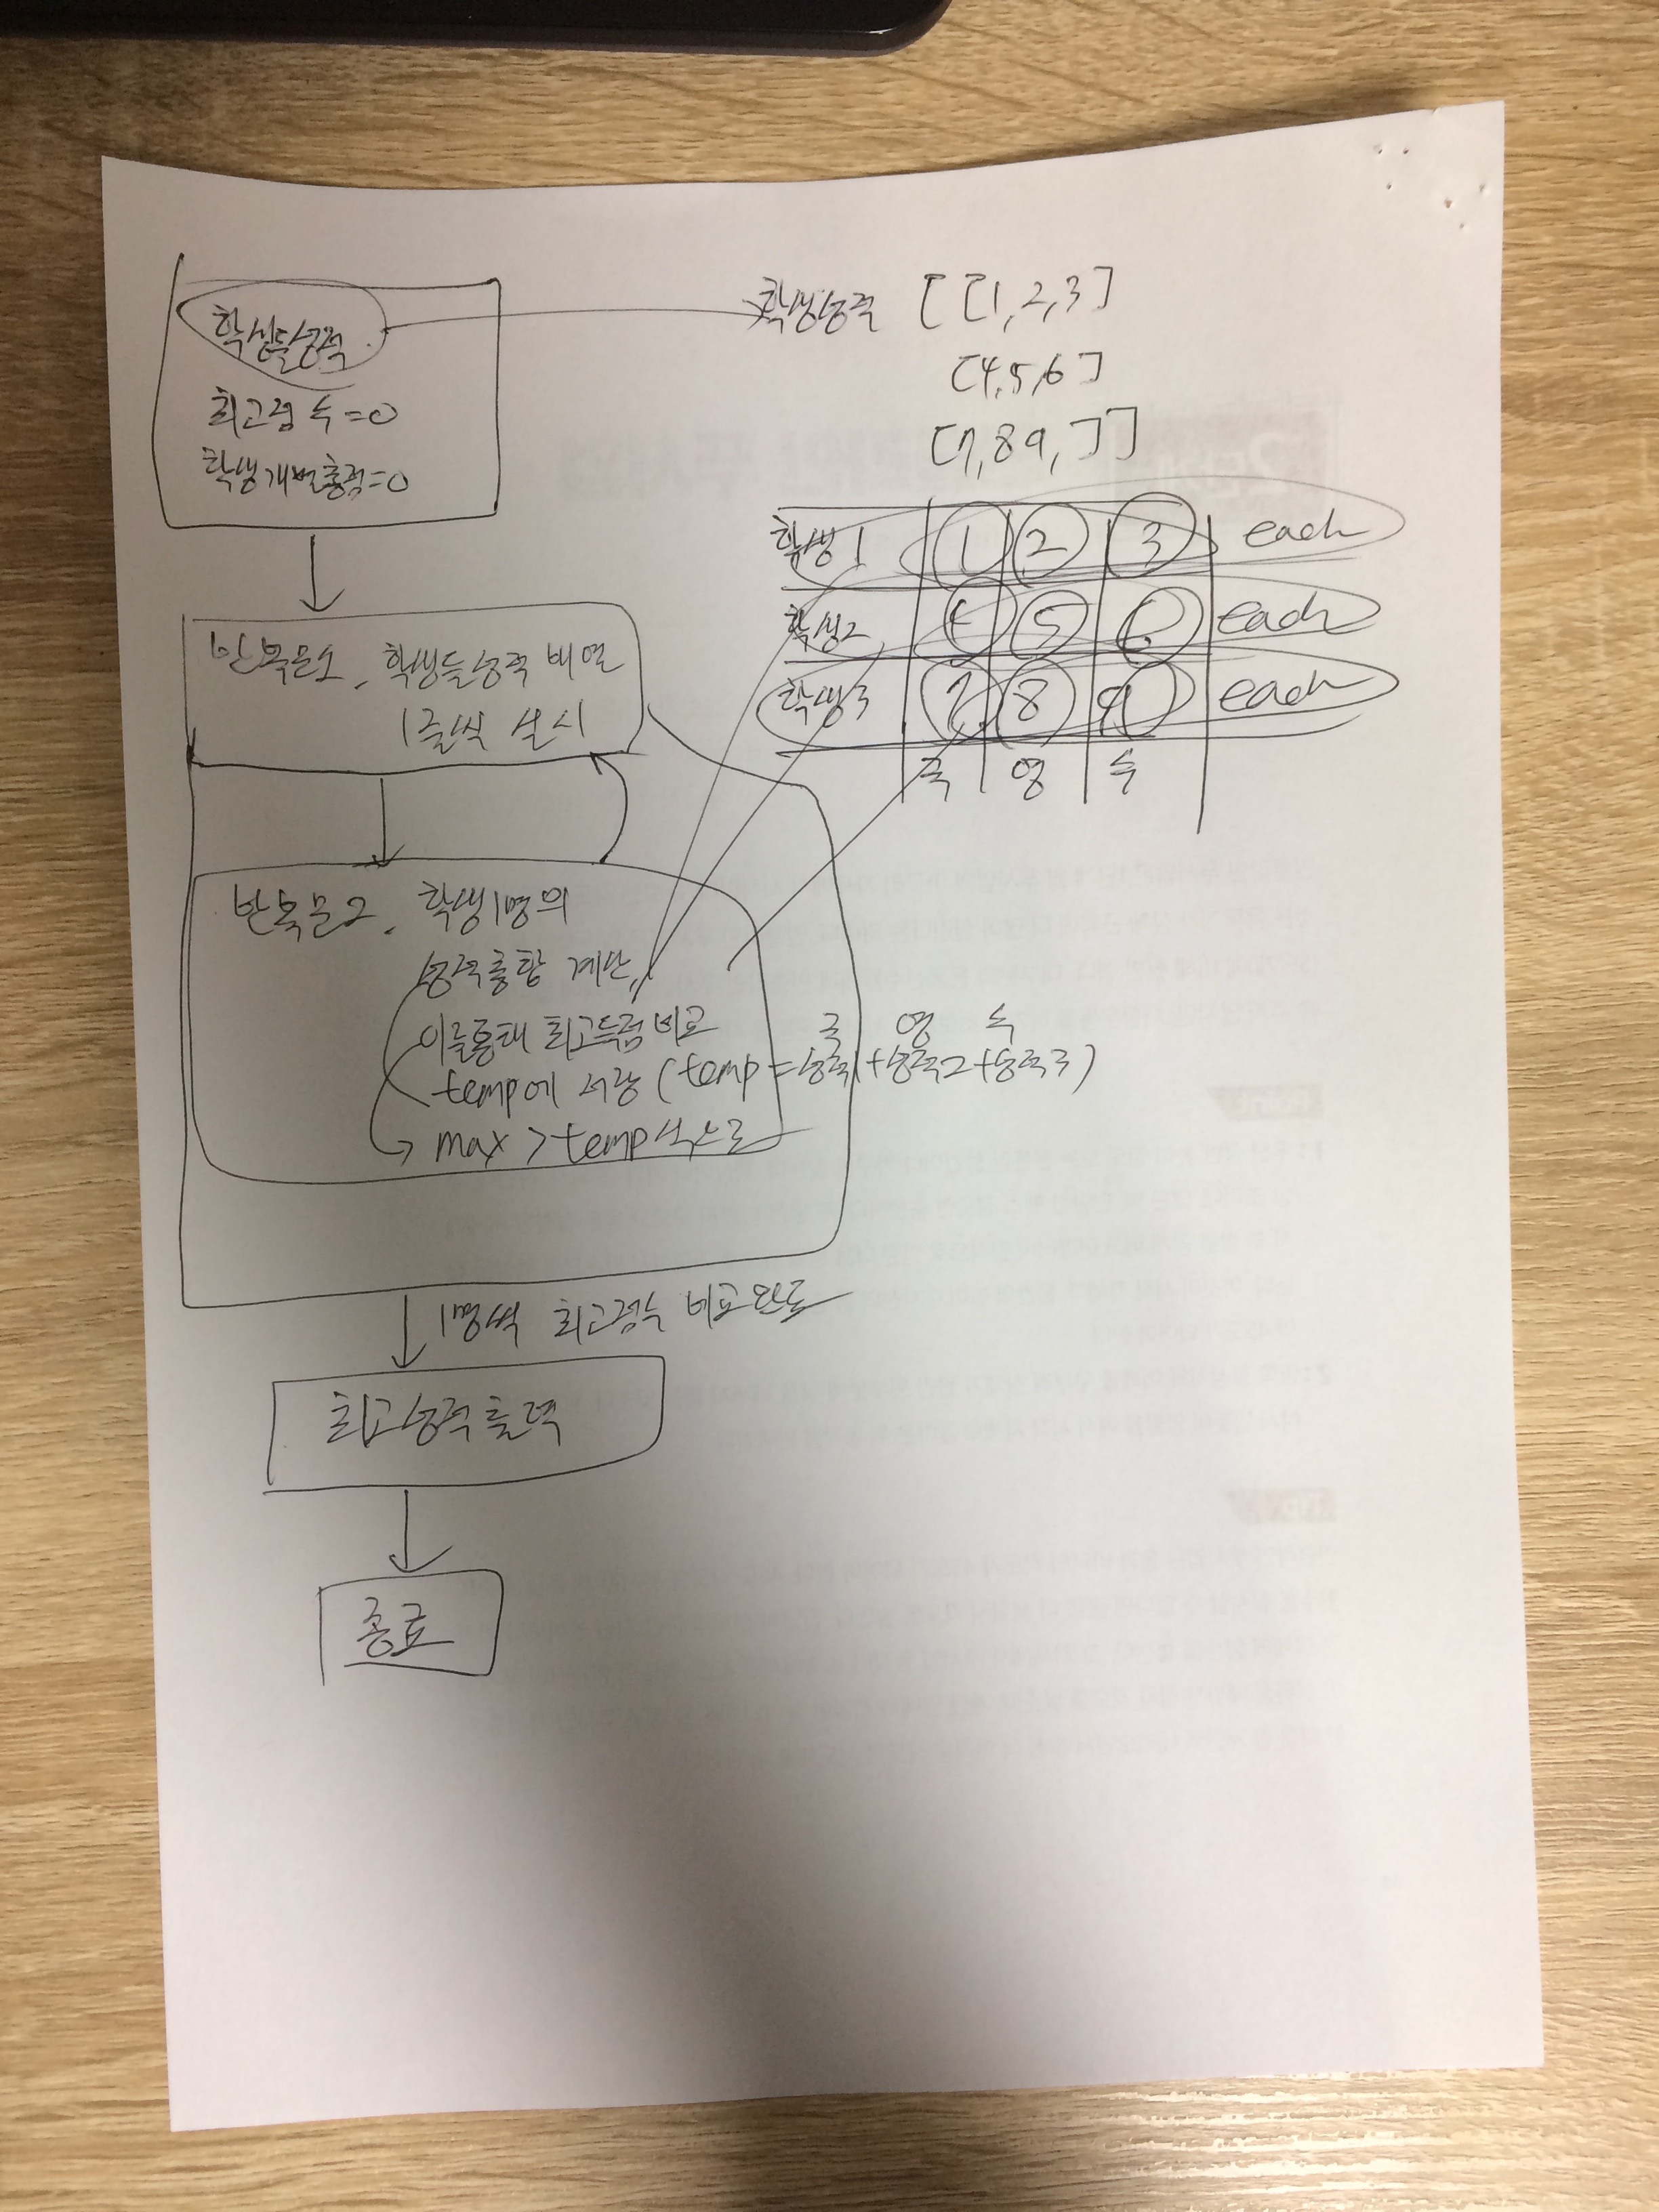 학생들성적
최고점수=0
학생개별총점=0
학생성적 [[1,2,3]
[4,5,6]
[7,8 9,]]
학생1 1 2 3 each
학생2 5 6 each
학생3 7 8 9 each
국 영 수
반복문1, 학생들성적 배열
1줄씩 실시
반복문2, 학생1명의
성적총합 계산,
이를통해 최고득점비교
국 영 수
temp에 저장 (temp=성적1+성적2+성적3)
max > temp식으로
1명씩 최고점수 비교완료
최고성적출력
종료